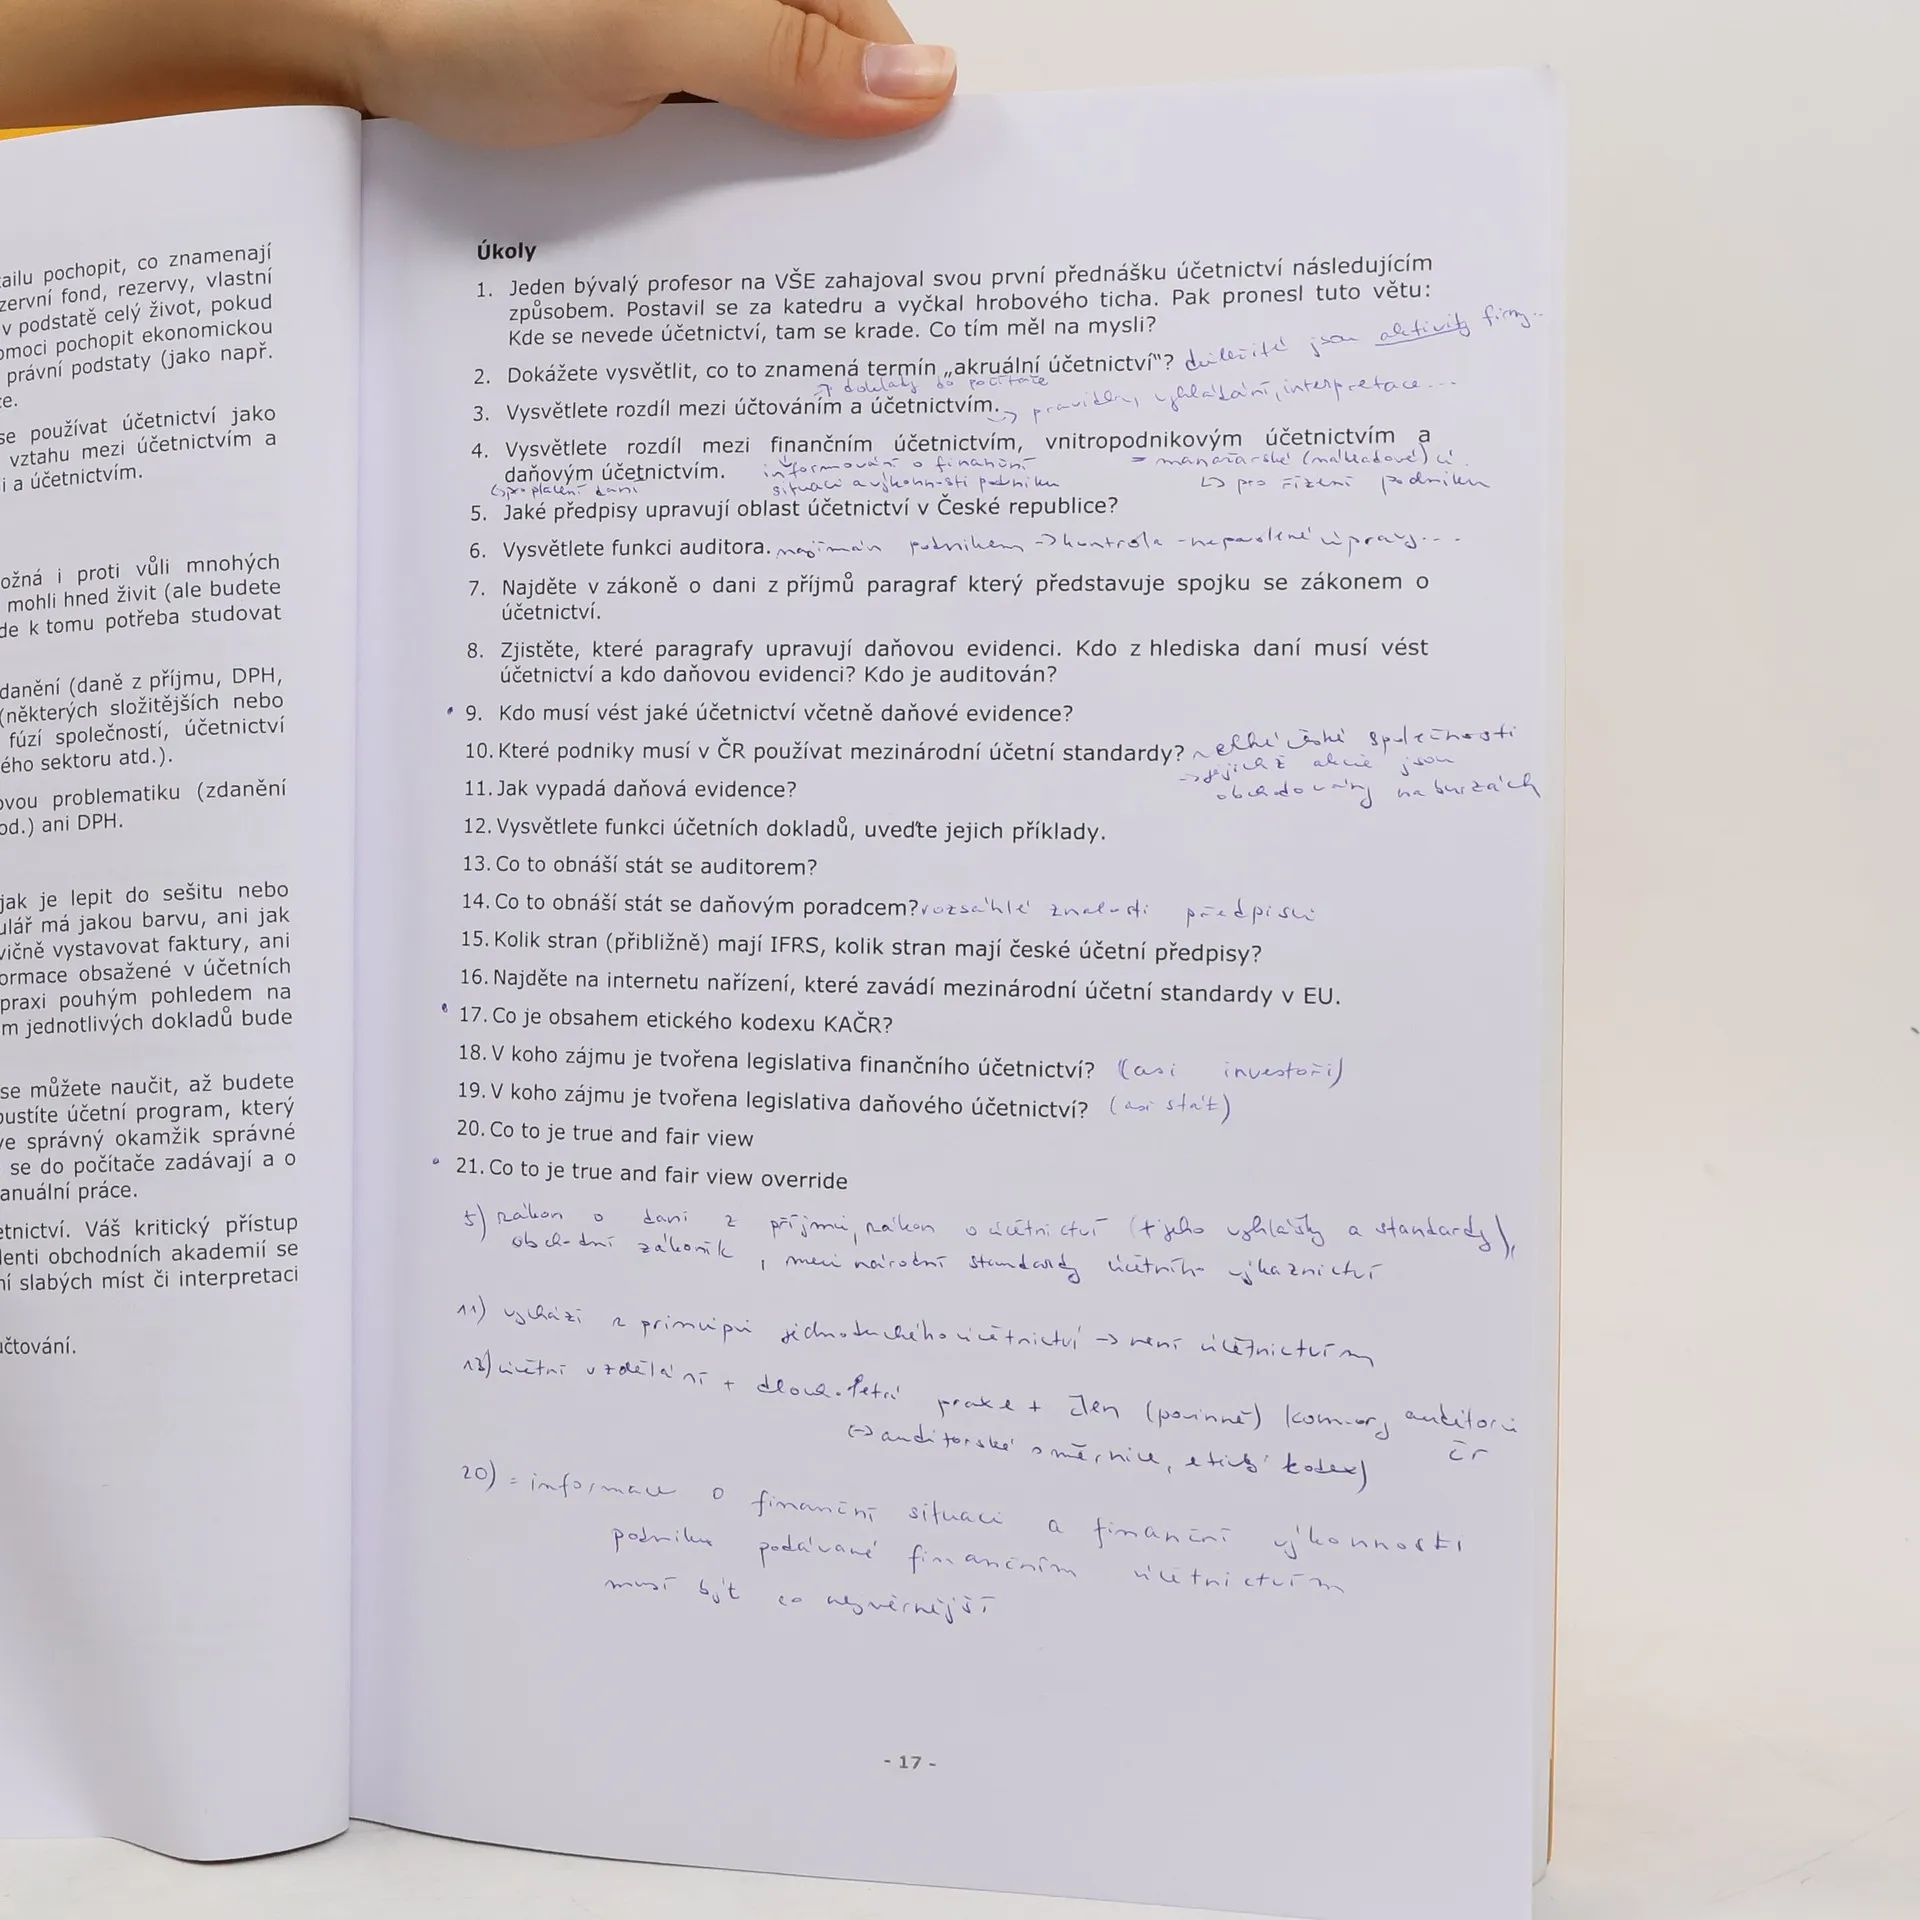 ailu pochopit, co znamenají
zervní fond, rezervy, vlastní
v podstatě celý život, pokud
omoci pochopit ekonomickou
právní podstaty (jako např.
ce.
se používat účetnictví jako
vztahu mezi účetnictvím a
i a účetnictvím.
ožná i proti vůli mnohých
mohli hned živit (ale budete
de k tomu potřeba studovat
danění (daně z příjmu, DPH,
(některých složitějších nebo
fúzí společností, účetnictví
ého sektoru atd.).
ovou problematiku (zdanění
od.) ani DPH.
jak je lepit do sešitu nebo
ulář má jakou barvu, ani jak
vičně vystavovat faktury, ani
ormace obsažené v účetních
praxi pouhým pohledem na
m jednotlivých dokladů bude
se můžete naučit, až budete
pustíte účetní program, který
ve správný okamžik správné
se do počítače zadávají a o
anuální práce.
etnictví. Váš kritický přístup
denti obchodních akademií se
ní slabých míst či interpretaci
účtování.
Úkoly
1. Jeden bývalý profesor na VŠE zahajoval svou první přednášku účetnictví následujícím
způsobem. Postavil se za katedru a vyčkal hrobového ticha. Pak pronesl tuto větu:
Kde se nevede účetnictví, tam se krade. Co tím měl na mysli?
2. Dokážete vysvětlit, co to znamená termín „akruální účetnictví"? důležité jsou aktivity firmy..
→ doklady do počítače
3. Vysvětlete rozdíl mezi účtováním a účetnictvím. → pravidla, vyhledání, interpretace...
4. Vysvětlete rozdíl mezi finančním účetnictvím, vnitropodnikovým účetnictvím a
daňovým účetnictvím. informování o finanční = manažerské (nákladové) úč.
↳ pro placení daní situaci a výkonnosti podniku ↳ pro řízení podniku
5. Jaké předpisy upravují oblast účetnictví v České republice?
6. Vysvětlete funkci auditora. najímán podnikem → kontrola - nepovolené úpravy...
7. Najděte v zákoně o dani z příjmů paragraf který představuje spojku se zákonem o
účetnictví.
8. Zjistěte, které paragrafy upravují daňovou evidenci. Kdo z hlediska daní musí vést
účetnictví a kdo daňovou evidenci? Kdo je auditován?
9. Kdo musí vést jaké účetnictví včetně daňové evidence?
10. Které podniky musí v ČR používat mezinárodní účetní standardy? velké české společnosti
→ jejichž akcie jsou
11. Jak vypadá daňová evidence? obchodovány na burzách
12. Vysvětlete funkci účetních dokladů, uveďte jejich příklady.
13. Co to obnáší stát se auditorem?
14. Co to obnáší stát se daňovým poradcem? rozsáhlé znalosti předpisů
15. Kolik stran (přibližně) mají IFRS, kolik stran mají české účetní předpisy?
16. Najděte na internetu nařízení, které zavádí mezinárodní účetní standardy v EU.
17. Co je obsahem etického kodexu KAČR?
18. V koho zájmu je tvořena legislativa finančního účetnictví? (asi investoři)
19. V koho zájmu je tvořena legislativa daňového účetnictví? (asi stát)
20. Co to je true and fair view
21. Co to je true and fair view override
5) zákon o dani z příjmů, zákon o účetnictví (+ jeho vyhlášky a standardy),
obchodní zákoník, mezinárodní standardy účetního výkaznictví
11) vychází z principů jednoduchého účetnictví → není účetnictvím
13) účetní vzdělání + dlouholetá praxe + člen (povinně) komory auditorů
(→ auditorské směrnice, etický kodex) ČR
20) = informace o finanční situaci a finanční výkonnosti
podniku podávané finančním účetnictvím
musí být co nejvěrnější
- 17 -